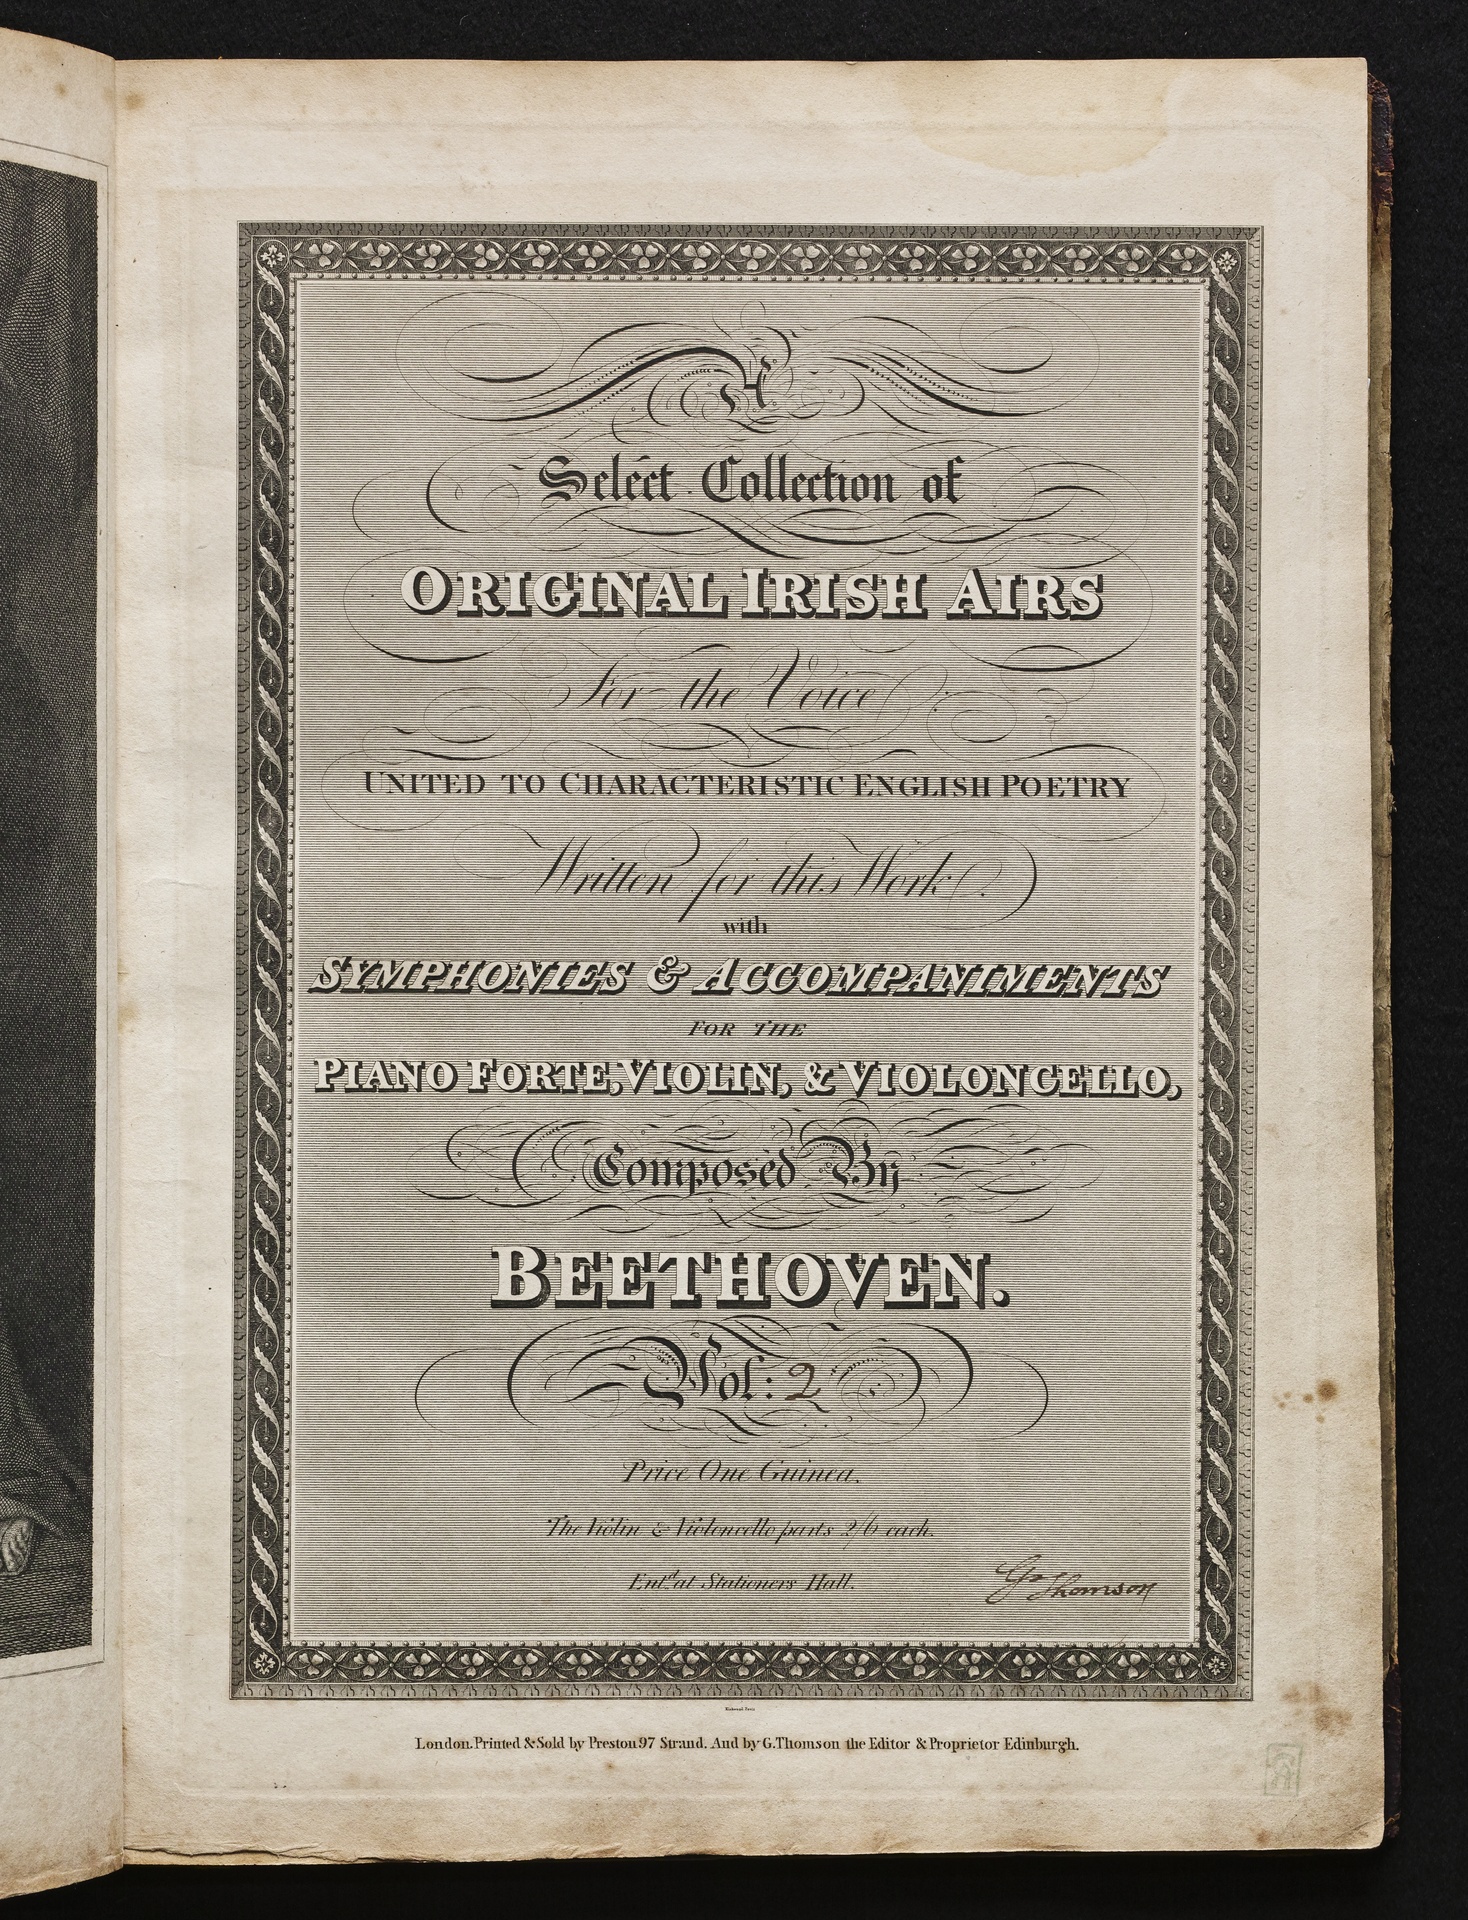 A
Select Collection of
ORIGINAL IRISH AIRS
For the Voice
UNITED TO CHARACTERISTIC ENGLISH POETRY
Written for this Work
with
SYMPHONIES & ACCOMPANIMENTS
FOR THE
PIANO FORTE, VIOLIN, & VIOLONCELLO,
Composed By
BEETHOVEN.
Vol: 2
Price One Guinea.
The Violin & Violoncello parts 2/6 each.
Ent.d at Stationers Hall.
G Thomson
London. Printed & Sold by Preston 97 Strand. And by G. Thomson the Editor & Proprietor Edinburgh.